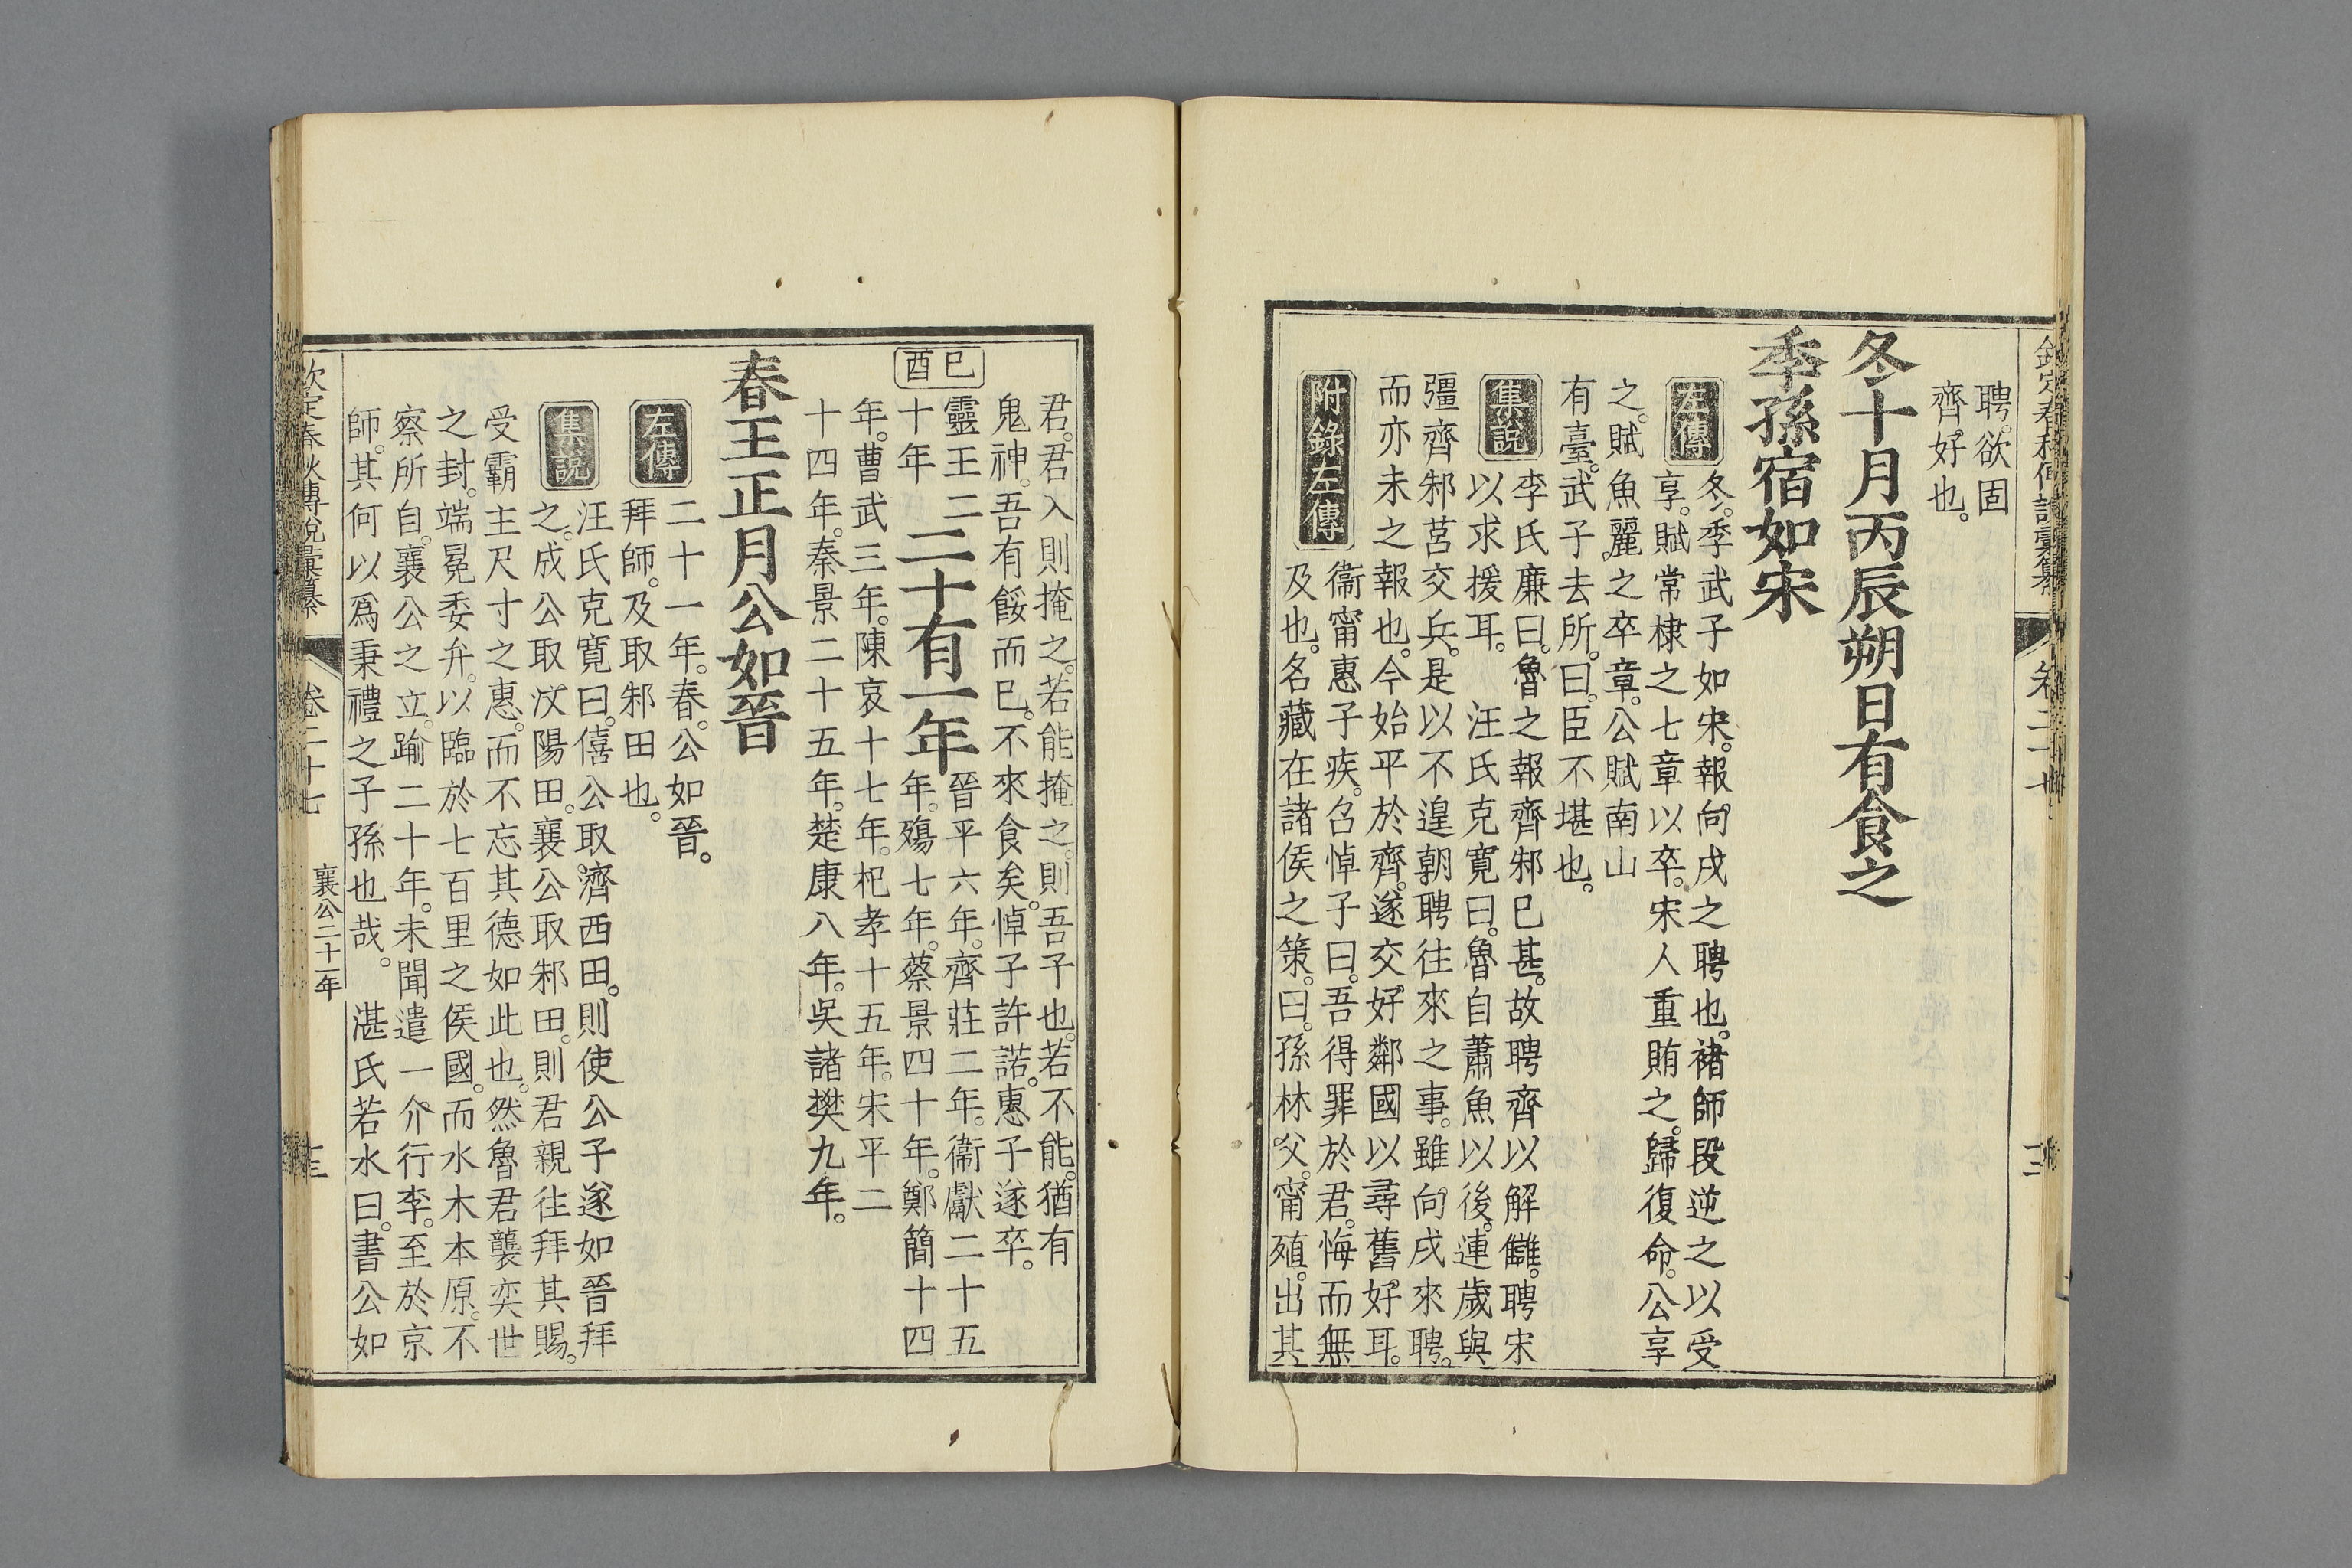 聘。欲固
齊好也。
冬十月丙辰朔日有食之
季孫宿如宋
左傳
冬。季武子如宋。報向戌之聘也。褚師段逆之以受
享。賦常棣之七章以卒。宋人重賄之。歸復命。公享
之。賦魚麗之卒章。公賦南山
有臺。武子去所。曰。臣不堪也。
集說
李氏廉曰。魯之報齊邾已甚。故聘齊以解讎。聘宋
以求援耳。 汪氏克寬曰。魯自蕭魚以後。連歲與
彊齊邾莒交兵。是以不遑朝聘往來之事。雖向戌來聘。
而亦未之報也。今始平於齊。遂交好鄰國以尋舊好耳。
附錄左傳
衞甯惠子疾。召悼子曰。吾得罪於君。悔而無
及也。名藏在諸侯之策。曰。孫林父。甯殖。出其
君。君入則掩之。若能掩之。則吾子也。若不能。猶有
鬼神。吾有餒而已。不來食矣。悼子許諾。惠子遂卒。
己酉
靈王二
十年
二十有一年
晉平六年。齊莊二年。衞獻二十五
年。殤七年。蔡景四十年。鄭簡十四
年。曹武三年。陳哀十七年。杞孝十五年。宋平二
十四年。秦景二十五年。楚康八年。吳諸樊九年。
春王正月公如晉
左傳
二十一年。春。公如晉。
拜師。及取邾田也。
集說
汪氏克寬曰。僖公取濟西田。則使公子遂如晉拜
之。成公取汶陽田。襄公取邾田。則君親往拜其賜。
受霸主尺寸之惠。而不忘其德如此也。然魯君襲奕世
之封。端冕委弁。以臨於七百里之侯國。而水木本原。不
察所自。襄公之立。踰二十年。未聞遣一介行李。至於京
師。其何以爲秉禮之子孫也哉。 湛氏若水曰。書公如
欽定春秋傳說彙纂
卷二十七
襄公二十一年
十三